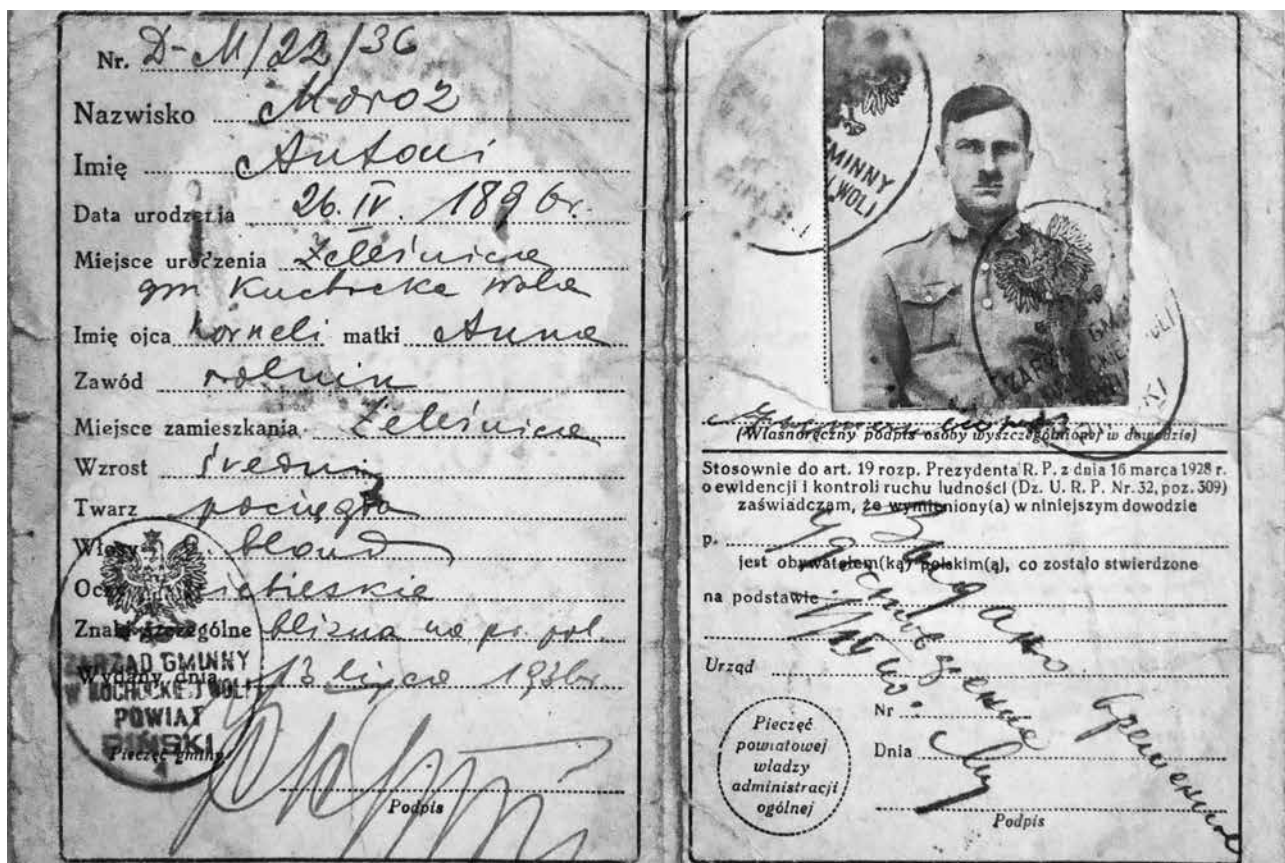 Nr. D-M/22/36
Nazwisko Moroz
Imię Antoni
Data urodzenia 26. IV. 1896 r.
Miejsce urodzenia Żeleśnica
gm Kuchocka Wola
Imię ojca Korneli matki Anna
Zawód rolnik
Miejsce zamieszkania Żeleśnica
Wzrost średni
Twarz pociągła
Włosy blond
Oczy niebieskie
Znaki szczególne blizna na pr. pol.
Wydany dnia 13 lipca 1936 r.
ZARZĄD GMINNY
W KUCHOCKIEJ WOLI
POWIAT
PIŃSKI
Pieczęć gminy
Podpis
GMINNY
WOLI
(Własnoręczny podpis osoby wyszczególnionej w dowodzie)
Stosownie do art. 19 rozp. Prezydenta R. P. z dnia 16 marca 1928 r.
o ewidencji i kontroli ruchu ludności (Dz. U. R. P. Nr. 32, poz. 309)
zaświadczam, że wymieniony(a) w niniejszym dowodzie
p.
jest obywatelem(ką) polskim(ą), co zostało stwierdzone
na podstawie
Urząd
Nr
Dnia
Pieczęć
powiatowej
władzy
administracji
ogólnej
Podpis